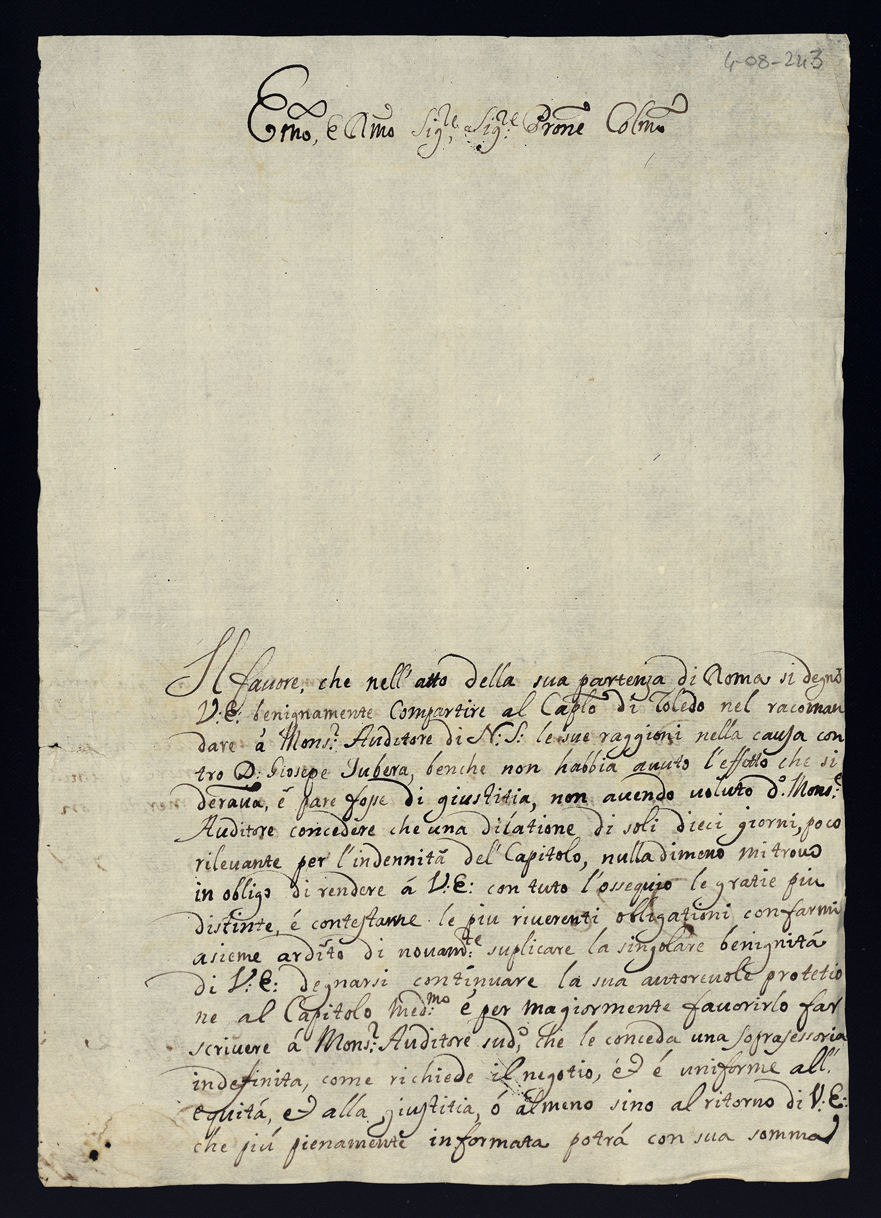 4-08-243
Emo, e Rmo Sigre, Sigre Prone Colmo
Il fauore, che nell'atto della sua partenza di Roma si degnò
V:E: benignamente compartire al Caplo di Toledo nel racoman
dare á Monsr. Auditore di N:S: le sue raggioni nella causa con
tro D: Giosepe Jubera, benche non habbia auuto l'effetto che si
deraua, é pare fosse di giustitia, non auendo uoluto do. Monsre
Auditore concedere che una dilatione di soli dieci giorni, poco
rileuante per l'indennitá del Capitolo, nulladimeno mi trouo
in obligo di rendere á V:E: con tuto l'ossequio le gratie piu
distinte, é contestarne le piu riuerenti obligationi con farmi
asieme ardito di nouamte. suplicare la singolare benignitá
di V:E: degnarsi continuare la sua autoreuole protetio
ne al Capitolo Medmo. é per magiormente fauorirlo far
scriuere á Monsr. Auditore sudo, che le conceda una soprasessoria
indefinita, come richiede il negotio, éd é uniforme all'
equitá, ed alla giustitia, ó almeno sino al ritorno di V:E:
che piú pienamente informata potrá con sua somma